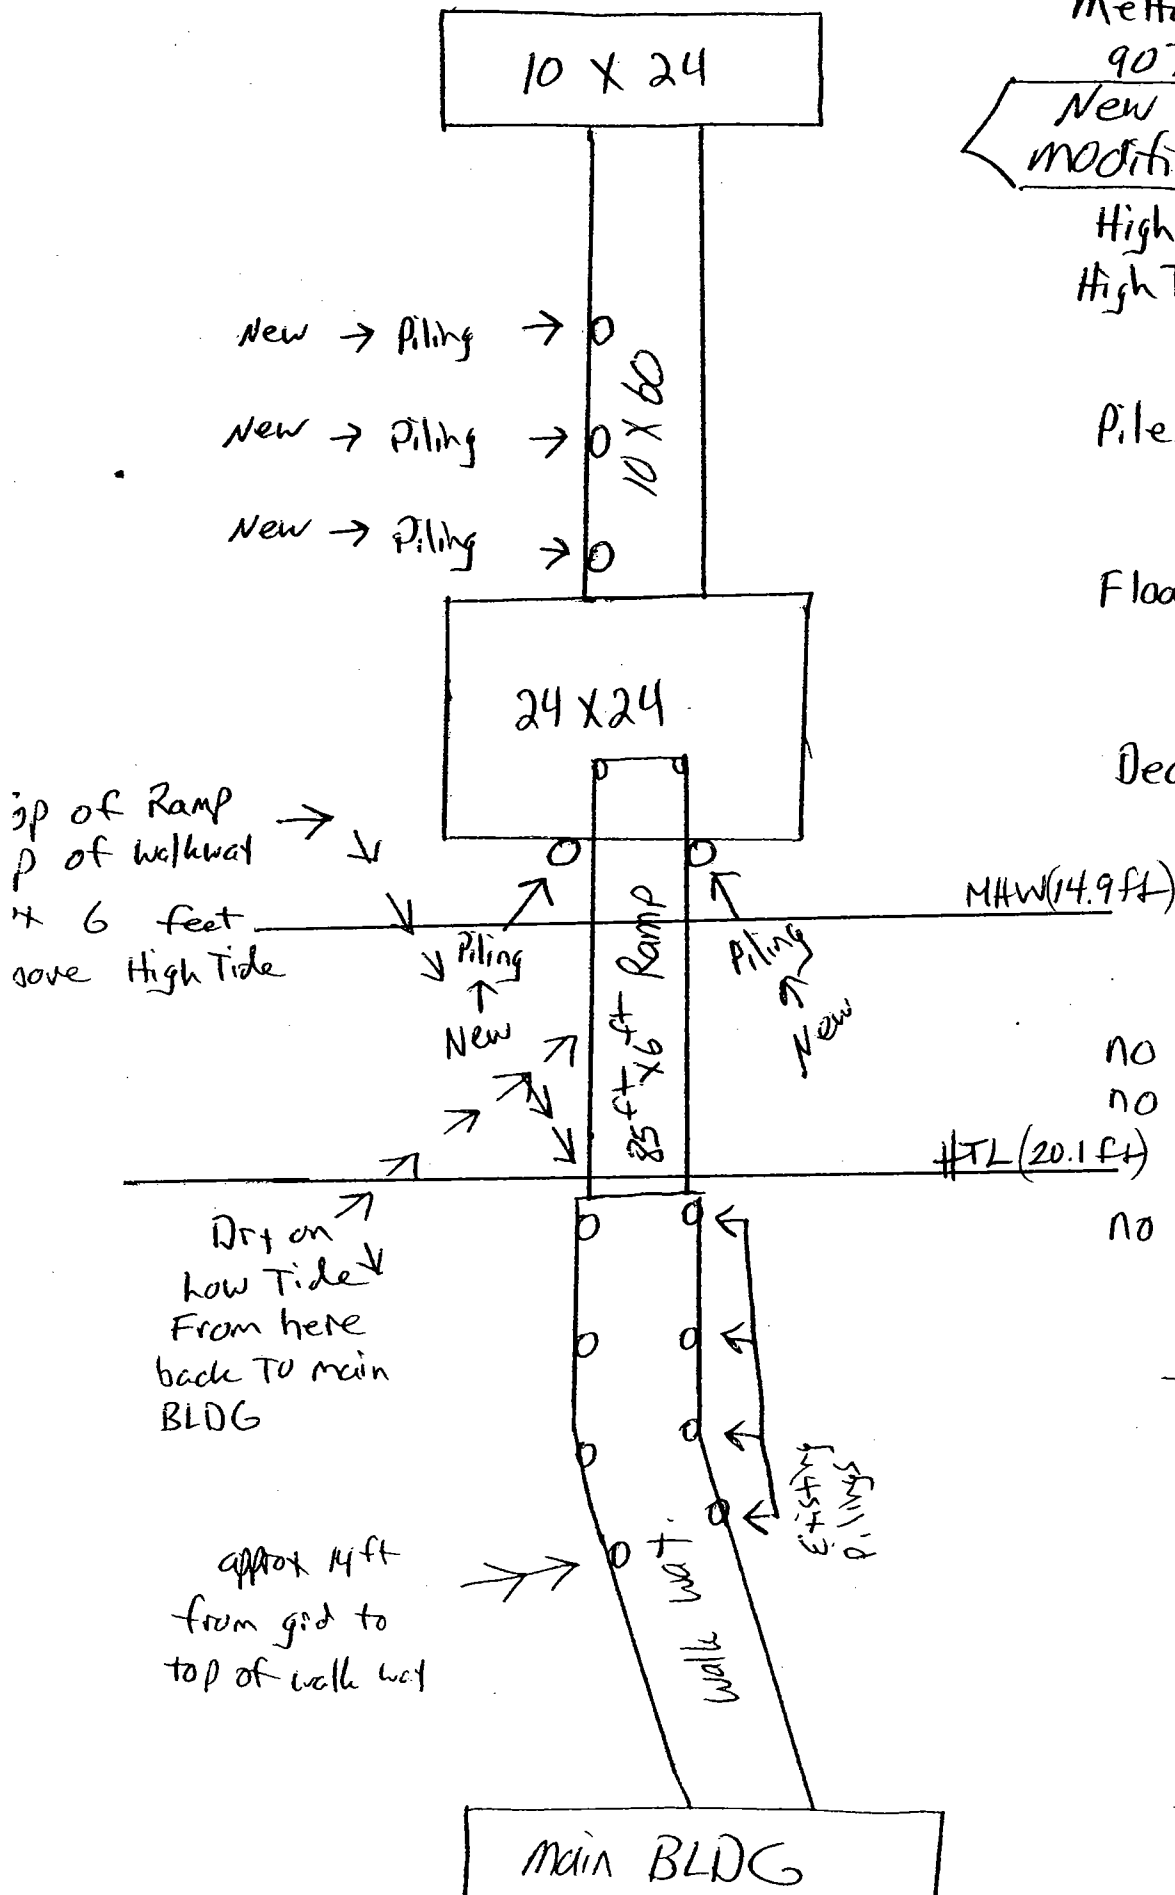 10 X 24
90
New
modifi
High
High T
New → Piling →
New → Piling →
New → Piling →
10 X 60
Pile
Floa
24 X 24
Dec
op of Ramp →
p of walkway
6 feet
ove High Tide
MHW (14.9 ft)
Piling
New
Piling
New
85 ft x 6 ft Ramp
no
no
HTL (20.1 ft)
no
Dry on
Low Tide
From here
back TO main
BLDG
Existing
pilings
approx 14 ft
from grd to
top of walk way
walk way.
Main BLDG